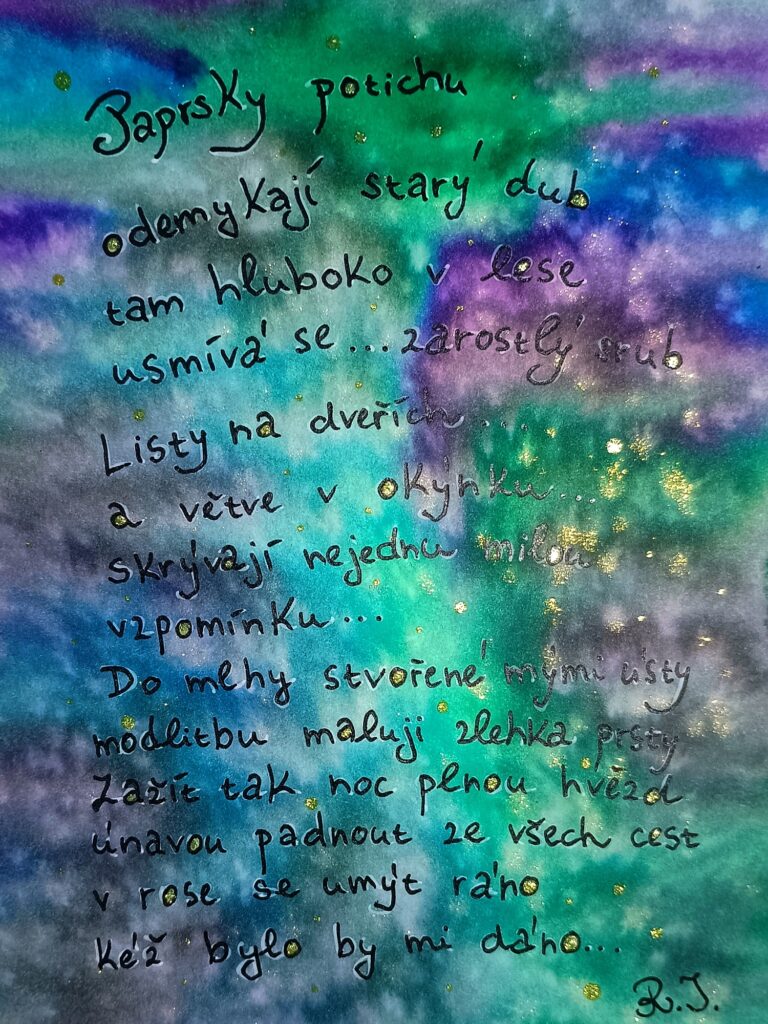 Paprsky potichu
odemykají starý dub
tam hluboko v lese
usmívá se... zarostlý srub
Listy na dveřích...
a větve v okýnku...
skrývají nejednu milou
vzpomínku...
Do mlhy stvořené mými ústy
modlitbu maluji zlehka prsty
Zažít tak noc plnou hvězd
únavou padnout ze všech cest
v rose se umýt ráno
Kéž bylo by mi dáno...
R.J.